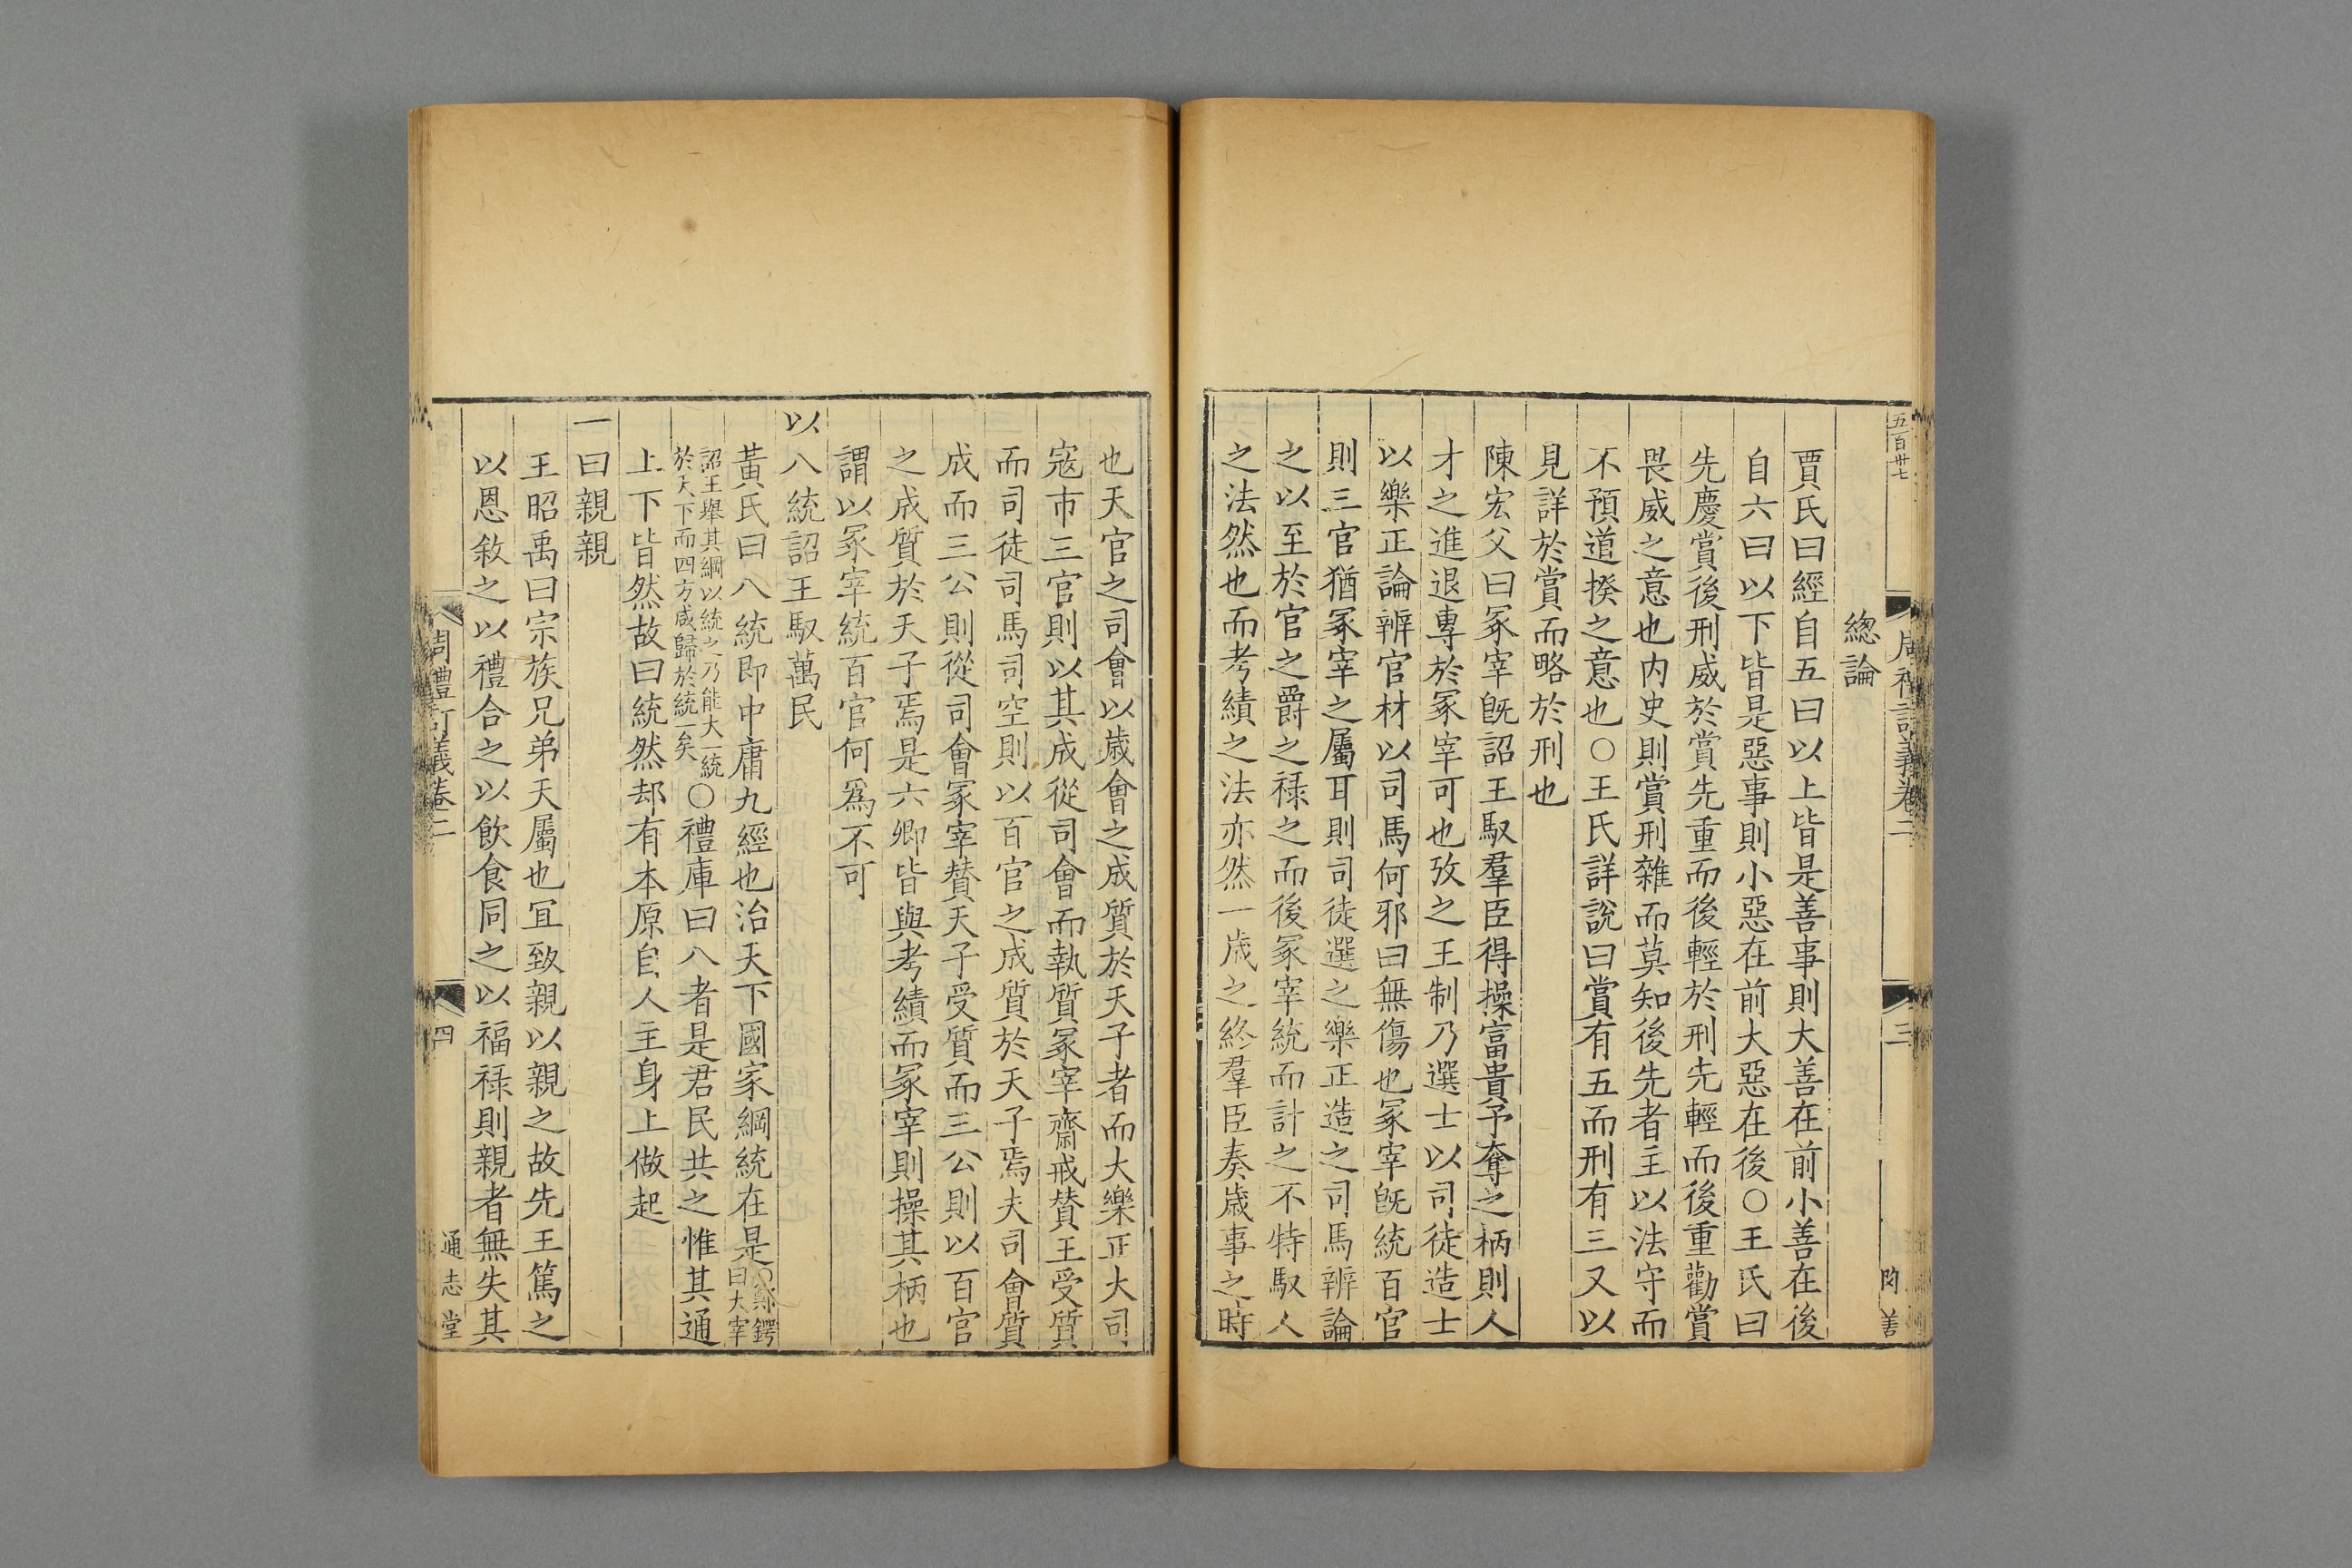 五百卅七
周禮訂義卷二
三
總論
賈氏曰經自五曰以上皆是善事則大善在前小善在後
自六曰以下皆是惡事則小惡在前大惡在後○王氏曰
先慶賞後刑威於賞先重而後輕於刑先輕而後重勸賞
畏威之意也內史則賞刑雜而莫知後先者主以法守而
不預道揆之意也○王氏詳說曰賞有五而刑有三又以
見詳於賞而略於刑也
陳宏父曰冢宰旣詔王馭羣臣得操富貴予奪之柄則人
才之進退專於冢宰可也攷之王制乃選士以司徒造士
以樂正論辨官材以司馬何邪曰無傷也冢宰旣統百官
則三官猶冢宰之屬耳則司徒選之樂正造之司馬辨論
之以至於官之爵之祿之而後冢宰統而計之不特馭人
之法然也而考績之法亦然一歲之終羣臣奏歲事之時
也天官之司會以歲會之成質於天子者而大樂正大司
寇市三官則以其成從司會而執質冢宰齋戒贊王受質
而司徒司馬司空則以百官之成質於天子焉夫司會質
成而三公則從司會冢宰贊天子受質而三公則以百官
之成質於天子焉是六卿皆與考績而冢宰則操其柄也
謂以冢宰統百官何爲不可
以八統詔王馭萬民
黃氏曰八統即中庸九經也治天下國家綱統在是○鄭鍔
曰大宰
詔王舉其綱以統之乃能大一統
於天下而四方咸歸於統一矣○禮庫曰八者是君民共之惟其通
上下皆然故曰統然却有本原自人主身上做起
一曰親親
王昭禹曰宗族兄弟天屬也宜致親以親之故先王篤之
以恩敘之以禮合之以飲食同之以福祿則親者無失其
周禮訂義卷二
四
通志堂